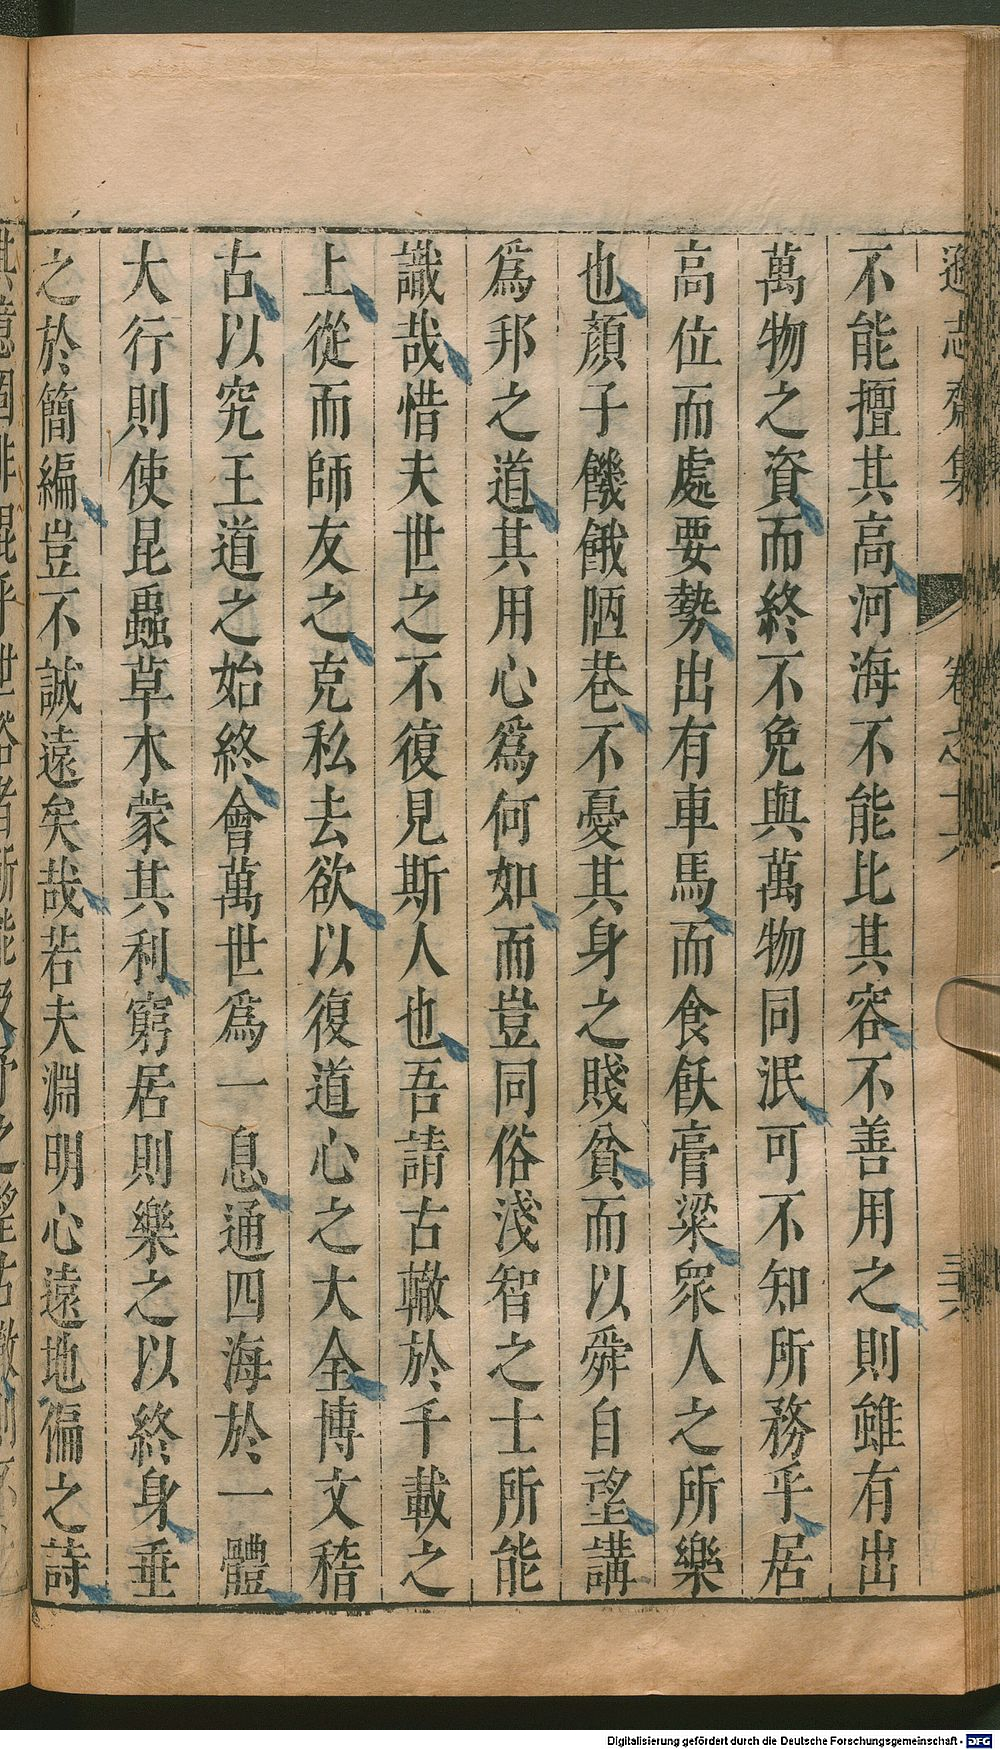 遜志齋集 卷之十六
不能擅其高河海不能比其容不善用之則雖有出
萬物之資而終不免與萬物同泯可不知所務乎居
高位而處要勢出有車馬而食飫膏粱衆人之所樂
也顏子饑餓陋巷不憂其身之賤貧而以舜自望講
爲邦之道其用心爲何如而豈同俗淺智之士所能
識哉惜夫世之不復見斯人也吾請古轍於千載之
上從而師友之克私去欲以復道心之大全博文稽
古以究王道之始終會萬世爲一息通四海於一體
大行則使昆蟲草木蒙其利窮居則樂之以終身垂
之於簡編豈不誠遠矣哉若夫淵明心遠地偏之詩
Digitalisierung gefördert durch die Deutsche Forschungsgemeinschaft - DFG